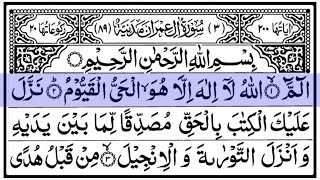 اٰیاتها ۲۰۰ (۳) سُوْرَةُ اٰلِ عِمْرٰنَ مَدَنِیَّةٌ (۸۹) رکوعاتها ۲۰
بِسْمِ اللّٰهِ الرَّحْمٰنِ الرَّحِیْمِ
الٓمَّٓ ۙ﴿۱﴾ اللّٰهُ لَاۤ اِلٰهَ اِلَّا هُوَ ۙ الْحَیُّ الْقَیُّوْمُ ؕ﴿۲﴾ نَزَّلَ
عَلَیْكَ الْكِتٰبَ بِالْحَقِّ مُصَدِّقًا لِّمَا بَیْنَ یَدَیْهِ
وَ اَنْزَلَ التَّوْرٰىةَ وَ الْاِنْجِیْلَ ۙ﴿۳﴾ مِنْ قَبْلُ هُدًی